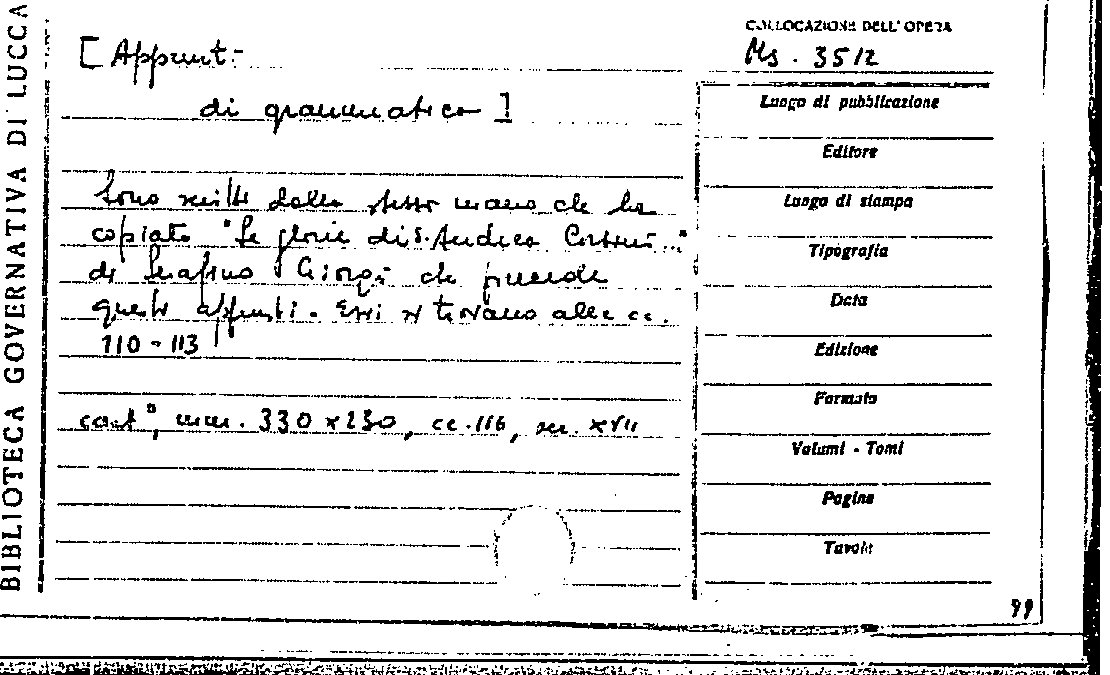 BIBLIOTECA GOVERNATIVA DI LUCCA
COLLOCAZIONE DELL'OPERA
Ms. 3512
[Appunti
di grammatica]
Sono scritti dalla stessa mano che ha
copiato "Le glorie di S. Andrea Corsini..."
di Serafino Giorgi che precede
questi appunti. Essi si trovano alle cc.
110-113
cart., mm. 330x230, cc. 116, sec. XVII
Luogo di pubblicazione
Editore
Luogo di stampa
Tipografia
Data
Edizione
Formato
Volumi - Tomi
Pagine
Tavole
99